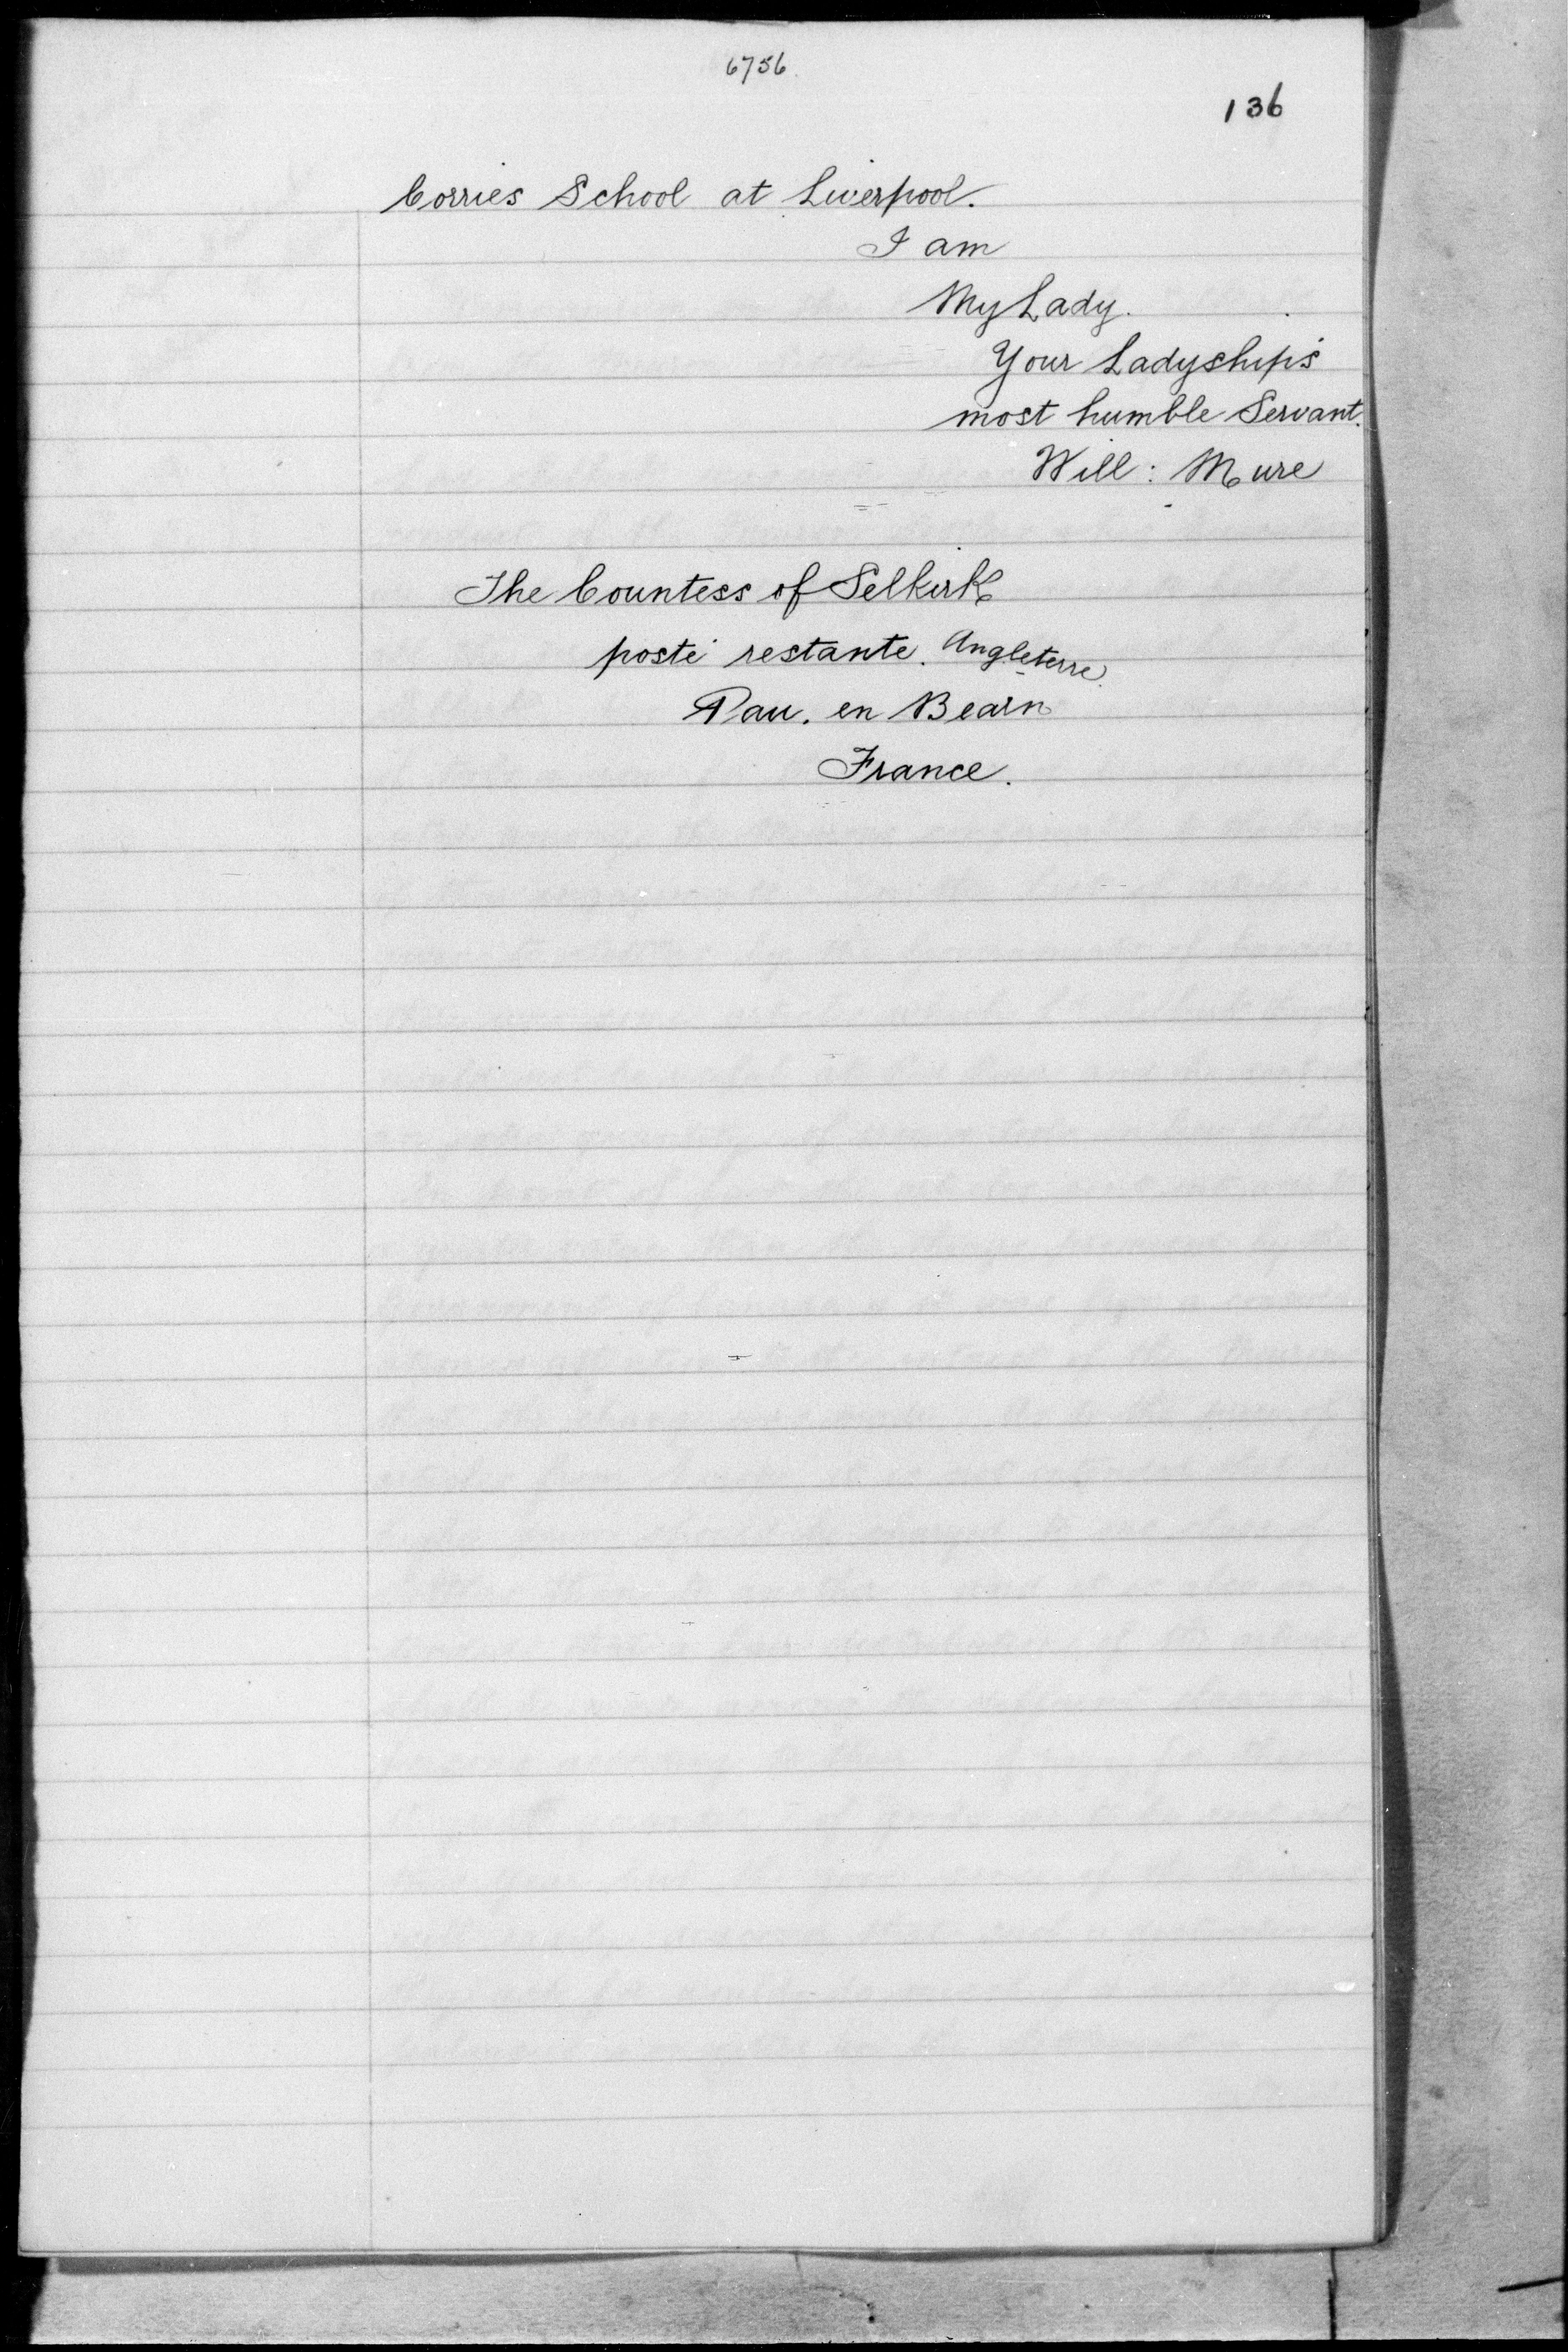 6756
136
Corries School at Liverpool.
I am
My Lady.
Your Ladyship's
most humble Servant.
Will: Mure
The Countess of Selkirk
posté restante. Angleterre.
Pau. en Bearn
France.